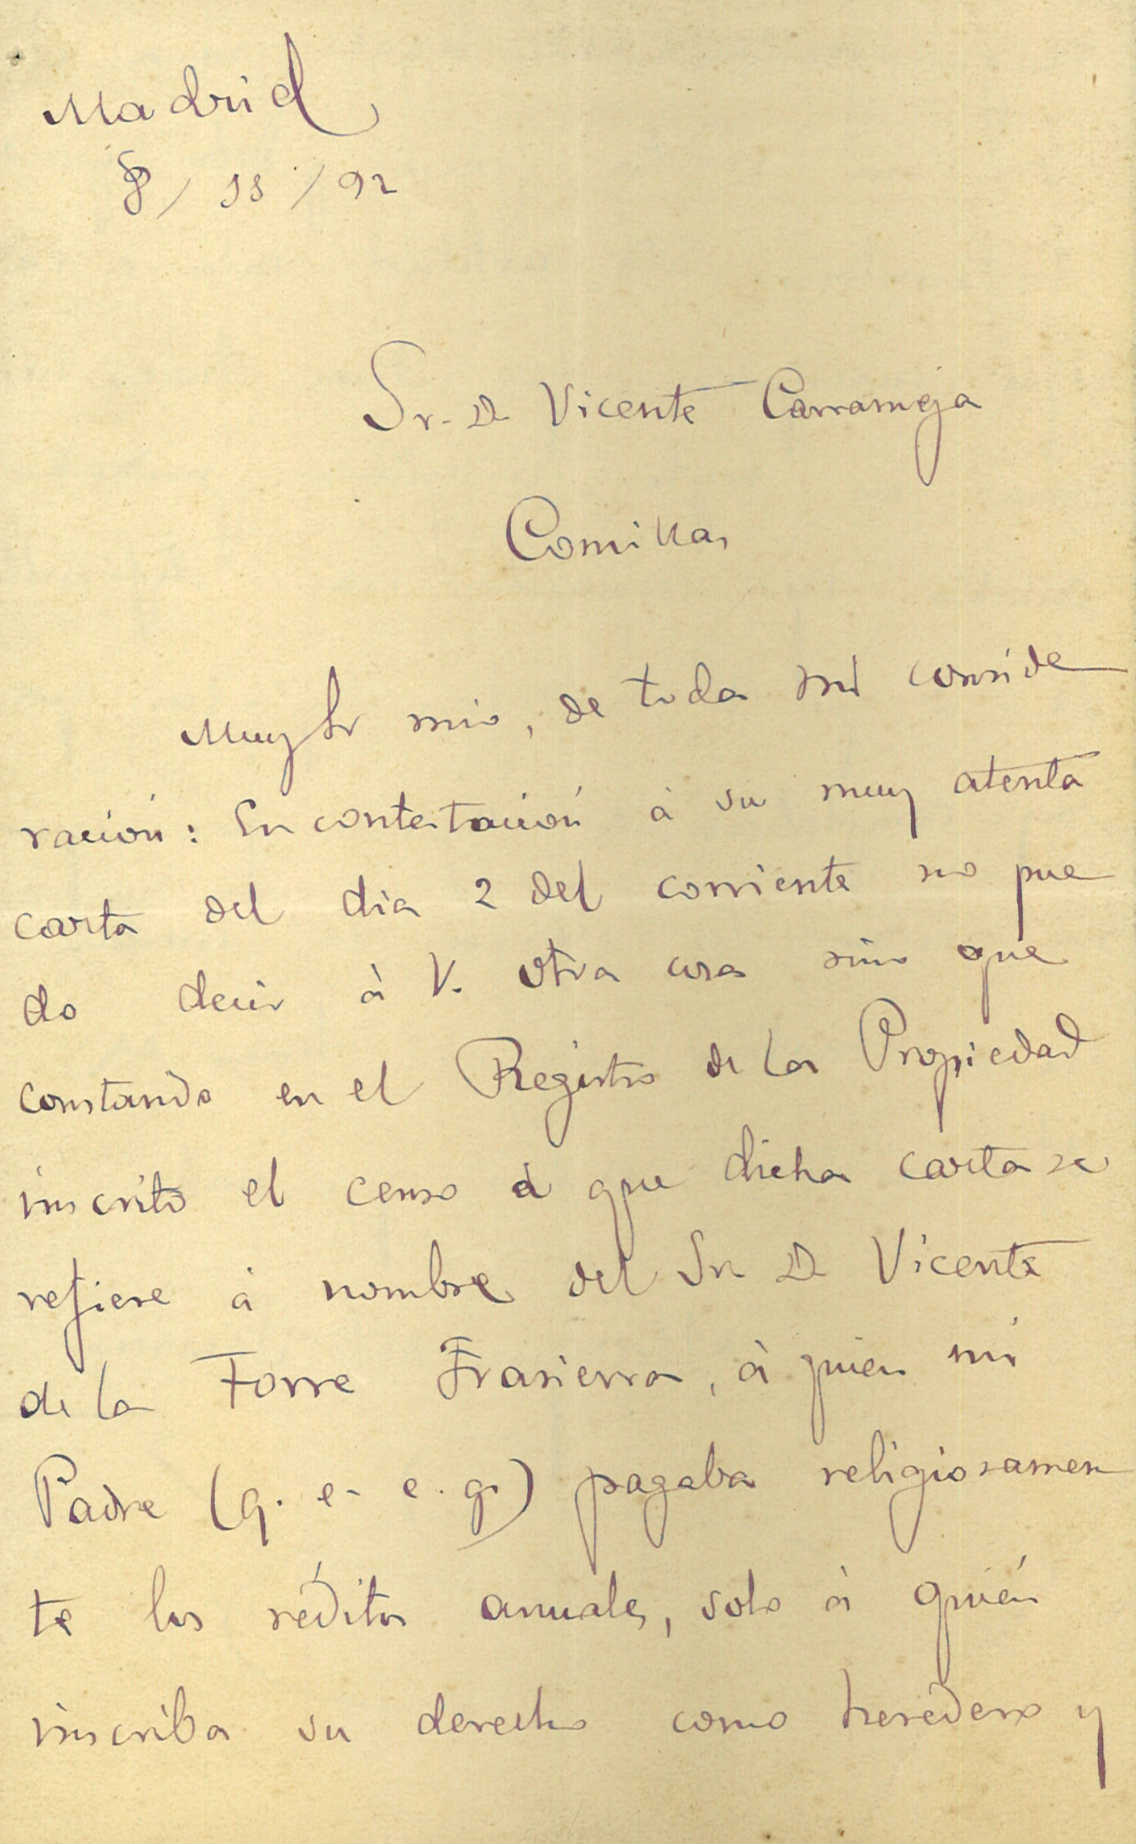 Madrid
8/11/92
Sr. D Vicente Carranceja
Comillas
Muy Sr mio, de toda mi conside
ración: En contestación à su muy atenta
carta del dia 2 del corriente no pue
do decir à V. otra cosa sino que
constando en el Registro de la Propiedad
inscrito el censo à que dicha carta se
refiere à nombre del Sr. D Vicente
de la Torre Trasierra, à quien mi
Padre (q. e. e. g.) pagaba religiosamen
te los réditos anuales, solo à quién
inscriba su derecho como heredero y